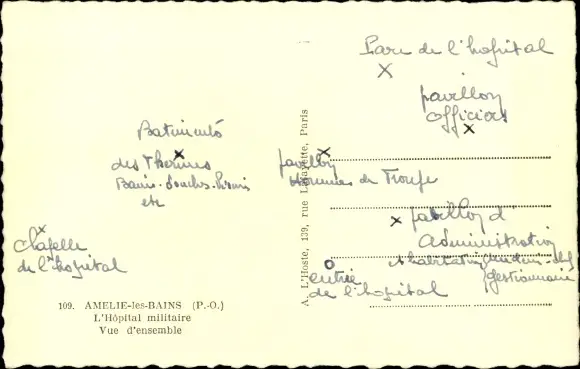 Parc de l'hopital
X
pavillon
officiers
X
Batiments
X
des Thermes
Bains-Douches-
etc
X
pavillon
Hommes de Troupe
X
pavillon d'
Administration
habitation
gestionnaire
X
Chapelle
de l'hopital
entrée
de l'hopital
109. AMELIE-les-BAINS (P.-O.)
L'Hôpital militaire
Vue d'ensemble
A. L'Hoste, 139, rue Lafayette, Paris